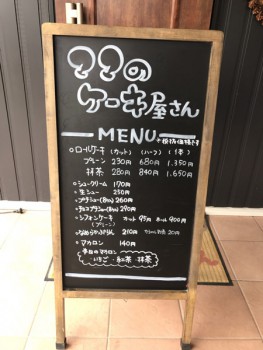 ママの
ケーキ屋さん
MENU
ロールケーキ (カット) (ハーフ) (1本)
プレーン 230円 680円 1,350
抹茶 280円 840円 1,650
シュークリーム 170円
生シュー 250円
プチシュー 260円
290円
シフォンケーキ カット 95円 ホール 900円
(プレーン)
なめらかぷりん 210円 30円
マカロン 140円
本日のマカロン
いちご・紅茶・抹茶